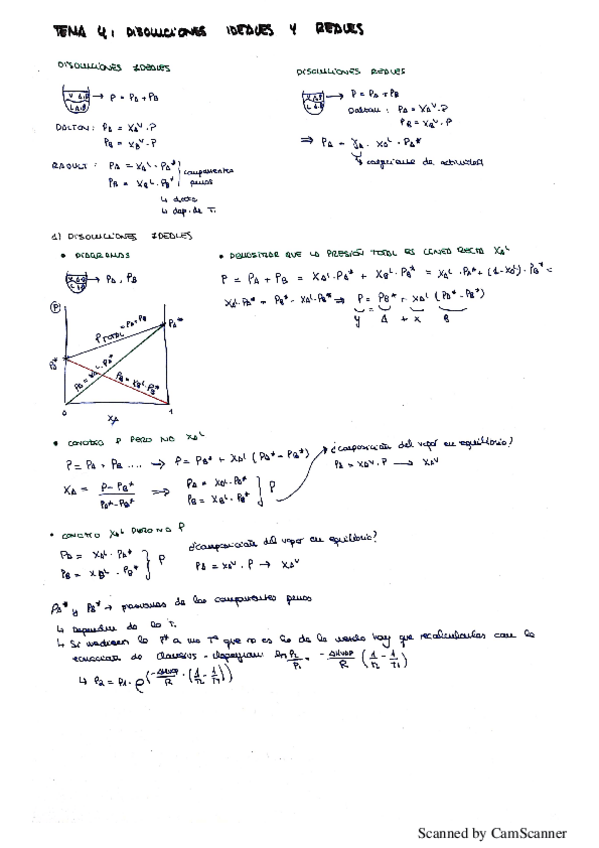 TEMA 4: DISOLUCIONES IDEALES Y REALES
DISOLUCIONES IDEALES
V A,B
L A,B
→ P = PA + PB
DALTON: PA = XA^V · P
PB = XB^V · P
RAOULT: PA = XA^L · PA*
PB = XB^L · PB*
componentes
puros
↳ dato
↳ dep. de T.
DISOLUCIONES REALES
V A,B
L A,B
→ P = PA + PB
DALTON: PA = XA^V · P
PB = XB^V · P
⇒ PA = γA · XA^L · PA*
↳ coeficiente de actividad
1) DISOLUCIONES IDEALES
• DIAGRAMAS
→ PA, PB
P
P TOTAL = PA + PB
PA*
PB*
PA = XA^L · PA*
PB = XB^L · PB*
0 1
XA
• DEMOSTRAR QUE LA PRESIÓN TOTAL ES LINEAL RECTA XA^L
P = PA + PB = XA^L · PA* + XB^L · PB* = XA^L · PA* + (1-XA^L) · PB* =
XA^L · PA* + PB* - XA^L · PB* ⇒ P = PB* + XA^L (PA* - PB*)
y A + x B
• CONOZCO P PERO NO XA^L
P = PA + PB .... → P = PB* + XA^L (PA* - PB*)
XA = P - PB* / PA* - PB* ⇒ PA = XA^L · PA*
PB = XB^L · PB*
} P
¿composición del vapor en equilibrio?
PA = XA^V · P → XA^V
• CONOZCO XA^L PERO NO P
PA = XA^L · PA*
PB = XB^L · PB*
} P
¿composición del vapor en equilibrio?
PA = XA^V · P → XA^V
PA* y PB* → presiones de los componentes puros
↳ Dependen de la T.
↳ Si me dieran la P* a una Tª que no es la de la mezcla hay que recalcularlas con la
ecuación de Clausius - Clapeyron: ln P2/P1 = -ΔHvap/R (1/T2 - 1/T1)
↳ P2 = P1 · e^(-ΔHvap/R · (1/T2 - 1/T1))
Scanned by CamScanner